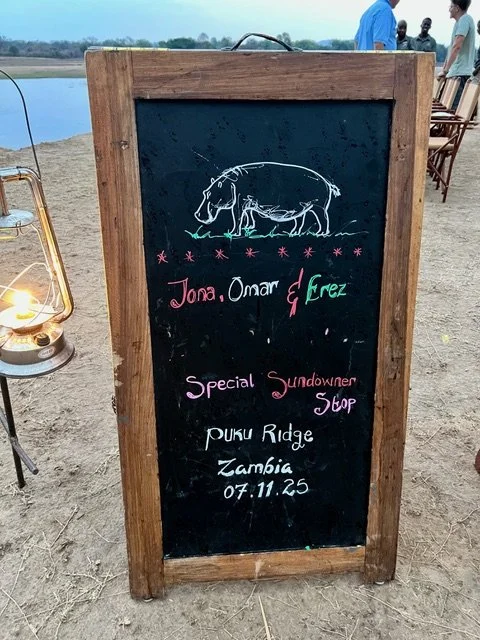 Jona, Omar & Erez
Special Sundowner
Stop
Puku Ridge
Zambia
07.11.25